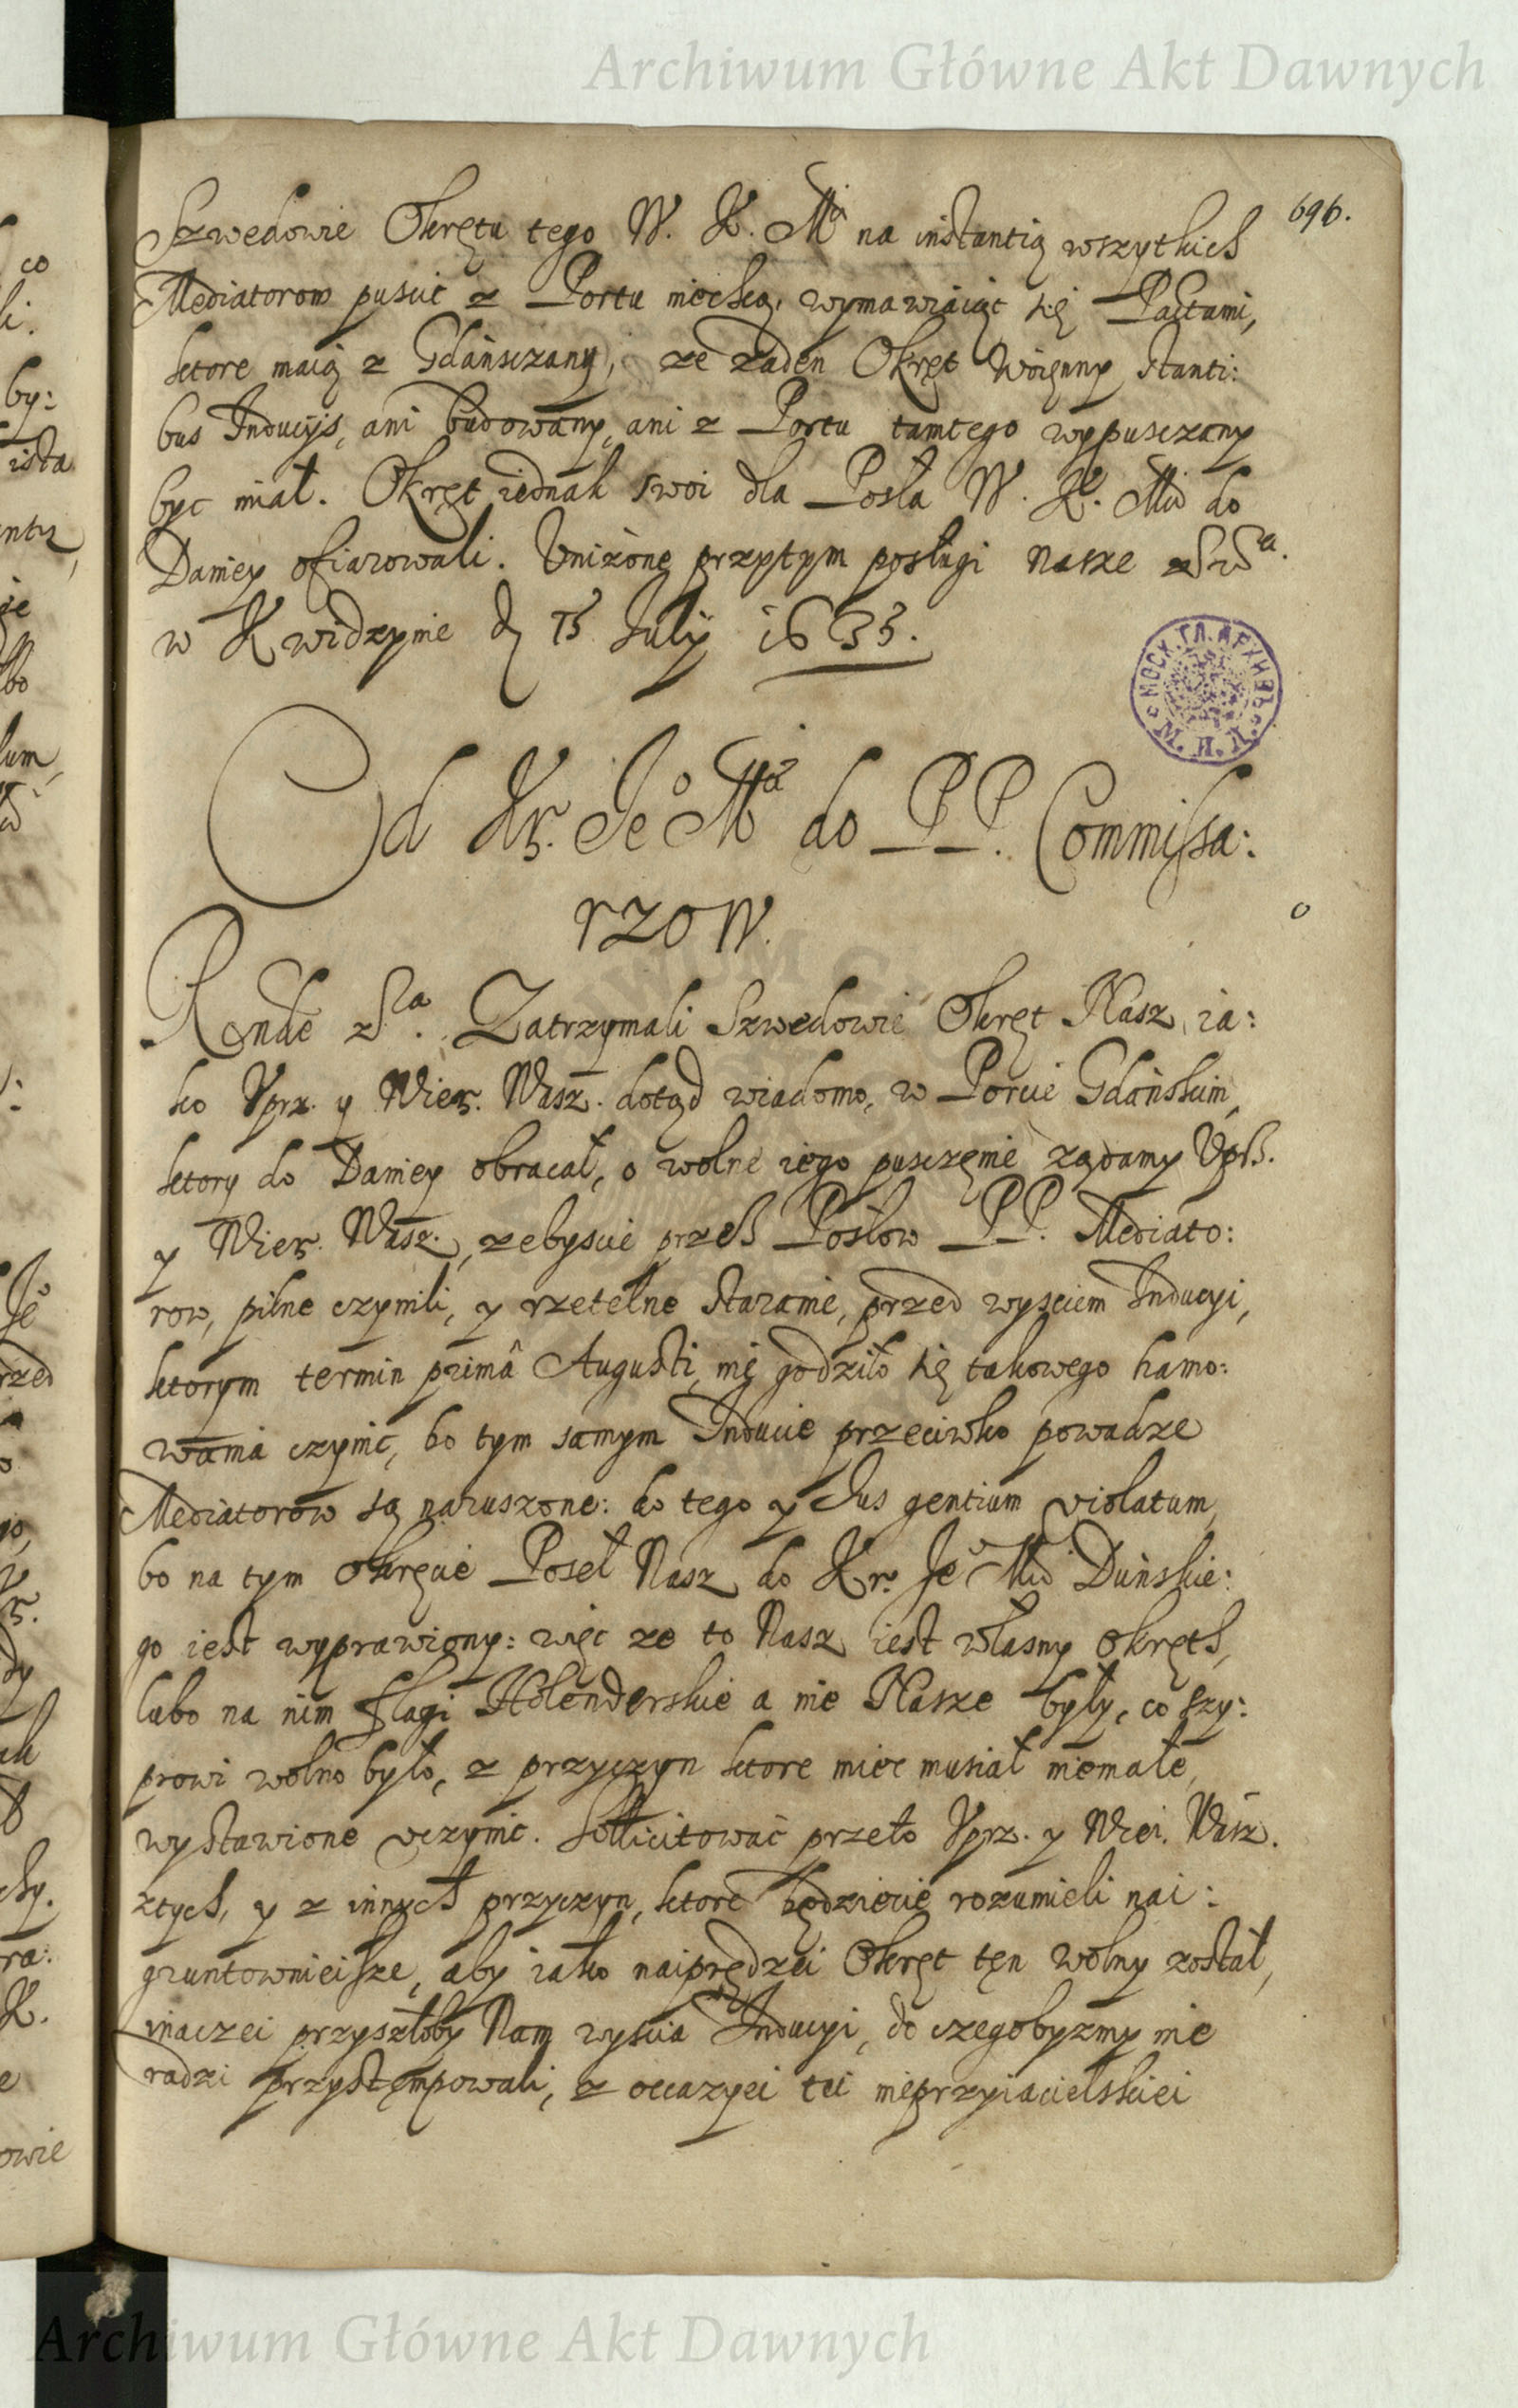 Archiwum Główne Akt Dawnych
696.
Szwedowie Okrętu tego W. K. Mci na instantią wszytkich
Mediatorow puscić z Portu niechcą, wymawiaiąc się Pactami,
ktore maią z Gdańsczany, ze zaden Okręt Woięnny stanti:
bus Inducijs, ani budowany, ani z Portu tamtego wypusczony
byc miał. Okręt iednak swoi dla Posła W. K. Mci do
Daniey ofiarowali. Unizone przytym posługi nasze
w Kwidzynie d 15 July 1635.
Od Kr. Je° Mci do PP. Commissa:
rzow.
Zatrzymali Szwedowie Okręt Nasz, ia:
ko Uprz. y Wier. Wasz. dotąd wiadomo, w Porcie Gdańskim,
ktory do Daniey obracał, o wolne iego pusczęnie ządamy Uprz.
y Wier. Wasz. zebyscie przez Posłow PP. Mediato:
row, pilne czynili, y rzetelne staranie, przed wysciem Inducyi,
ktorym termin primâ Augusti, nię godziło się takowego hamo:
wania czynić, bo tym samym Inducie przeciwko powadze
Mediatorow są naruszone: do tego y Jus gentium violatum,
bo na tym okręcie Poseł Nasz do Kr. Je° Mci Duńskie:
go iest wyprawiony: więc ze to Nasz iest własny okręth,
lubo na nim flagi Holenderskie a nie Nasze były, co szy:
prowi wolno było, z przyczyn ktore mieć musiał niemałe,
wystawione uczynić. Sollicitować przeto Uprz. y Wier. Wasz.
ztych, y z innych przyczyn, ktore będziecie rozumieli nai:
gruntownieisze, aby iako naiprędzei Okręt tęn wolny został,
inaczei przyszłoby Nam wyscia Inducyi, do czegobyzmy nie
radzi przystęmpowali, z occazyei tei nieprzyiacielskiei
Archiwum Główne Akt Dawnych